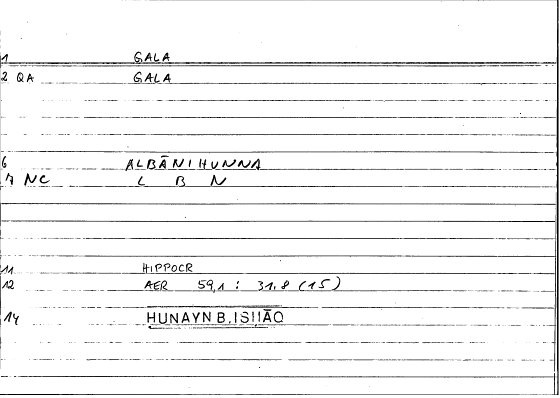 1 GALA
2 QA GALA
6 ALBĀNIHUNNA
7 NC L B N
11 HIPPOCR
12 AER 59,1 : 31,8 (15)
14 HUNAYN B. ISḤĀQ